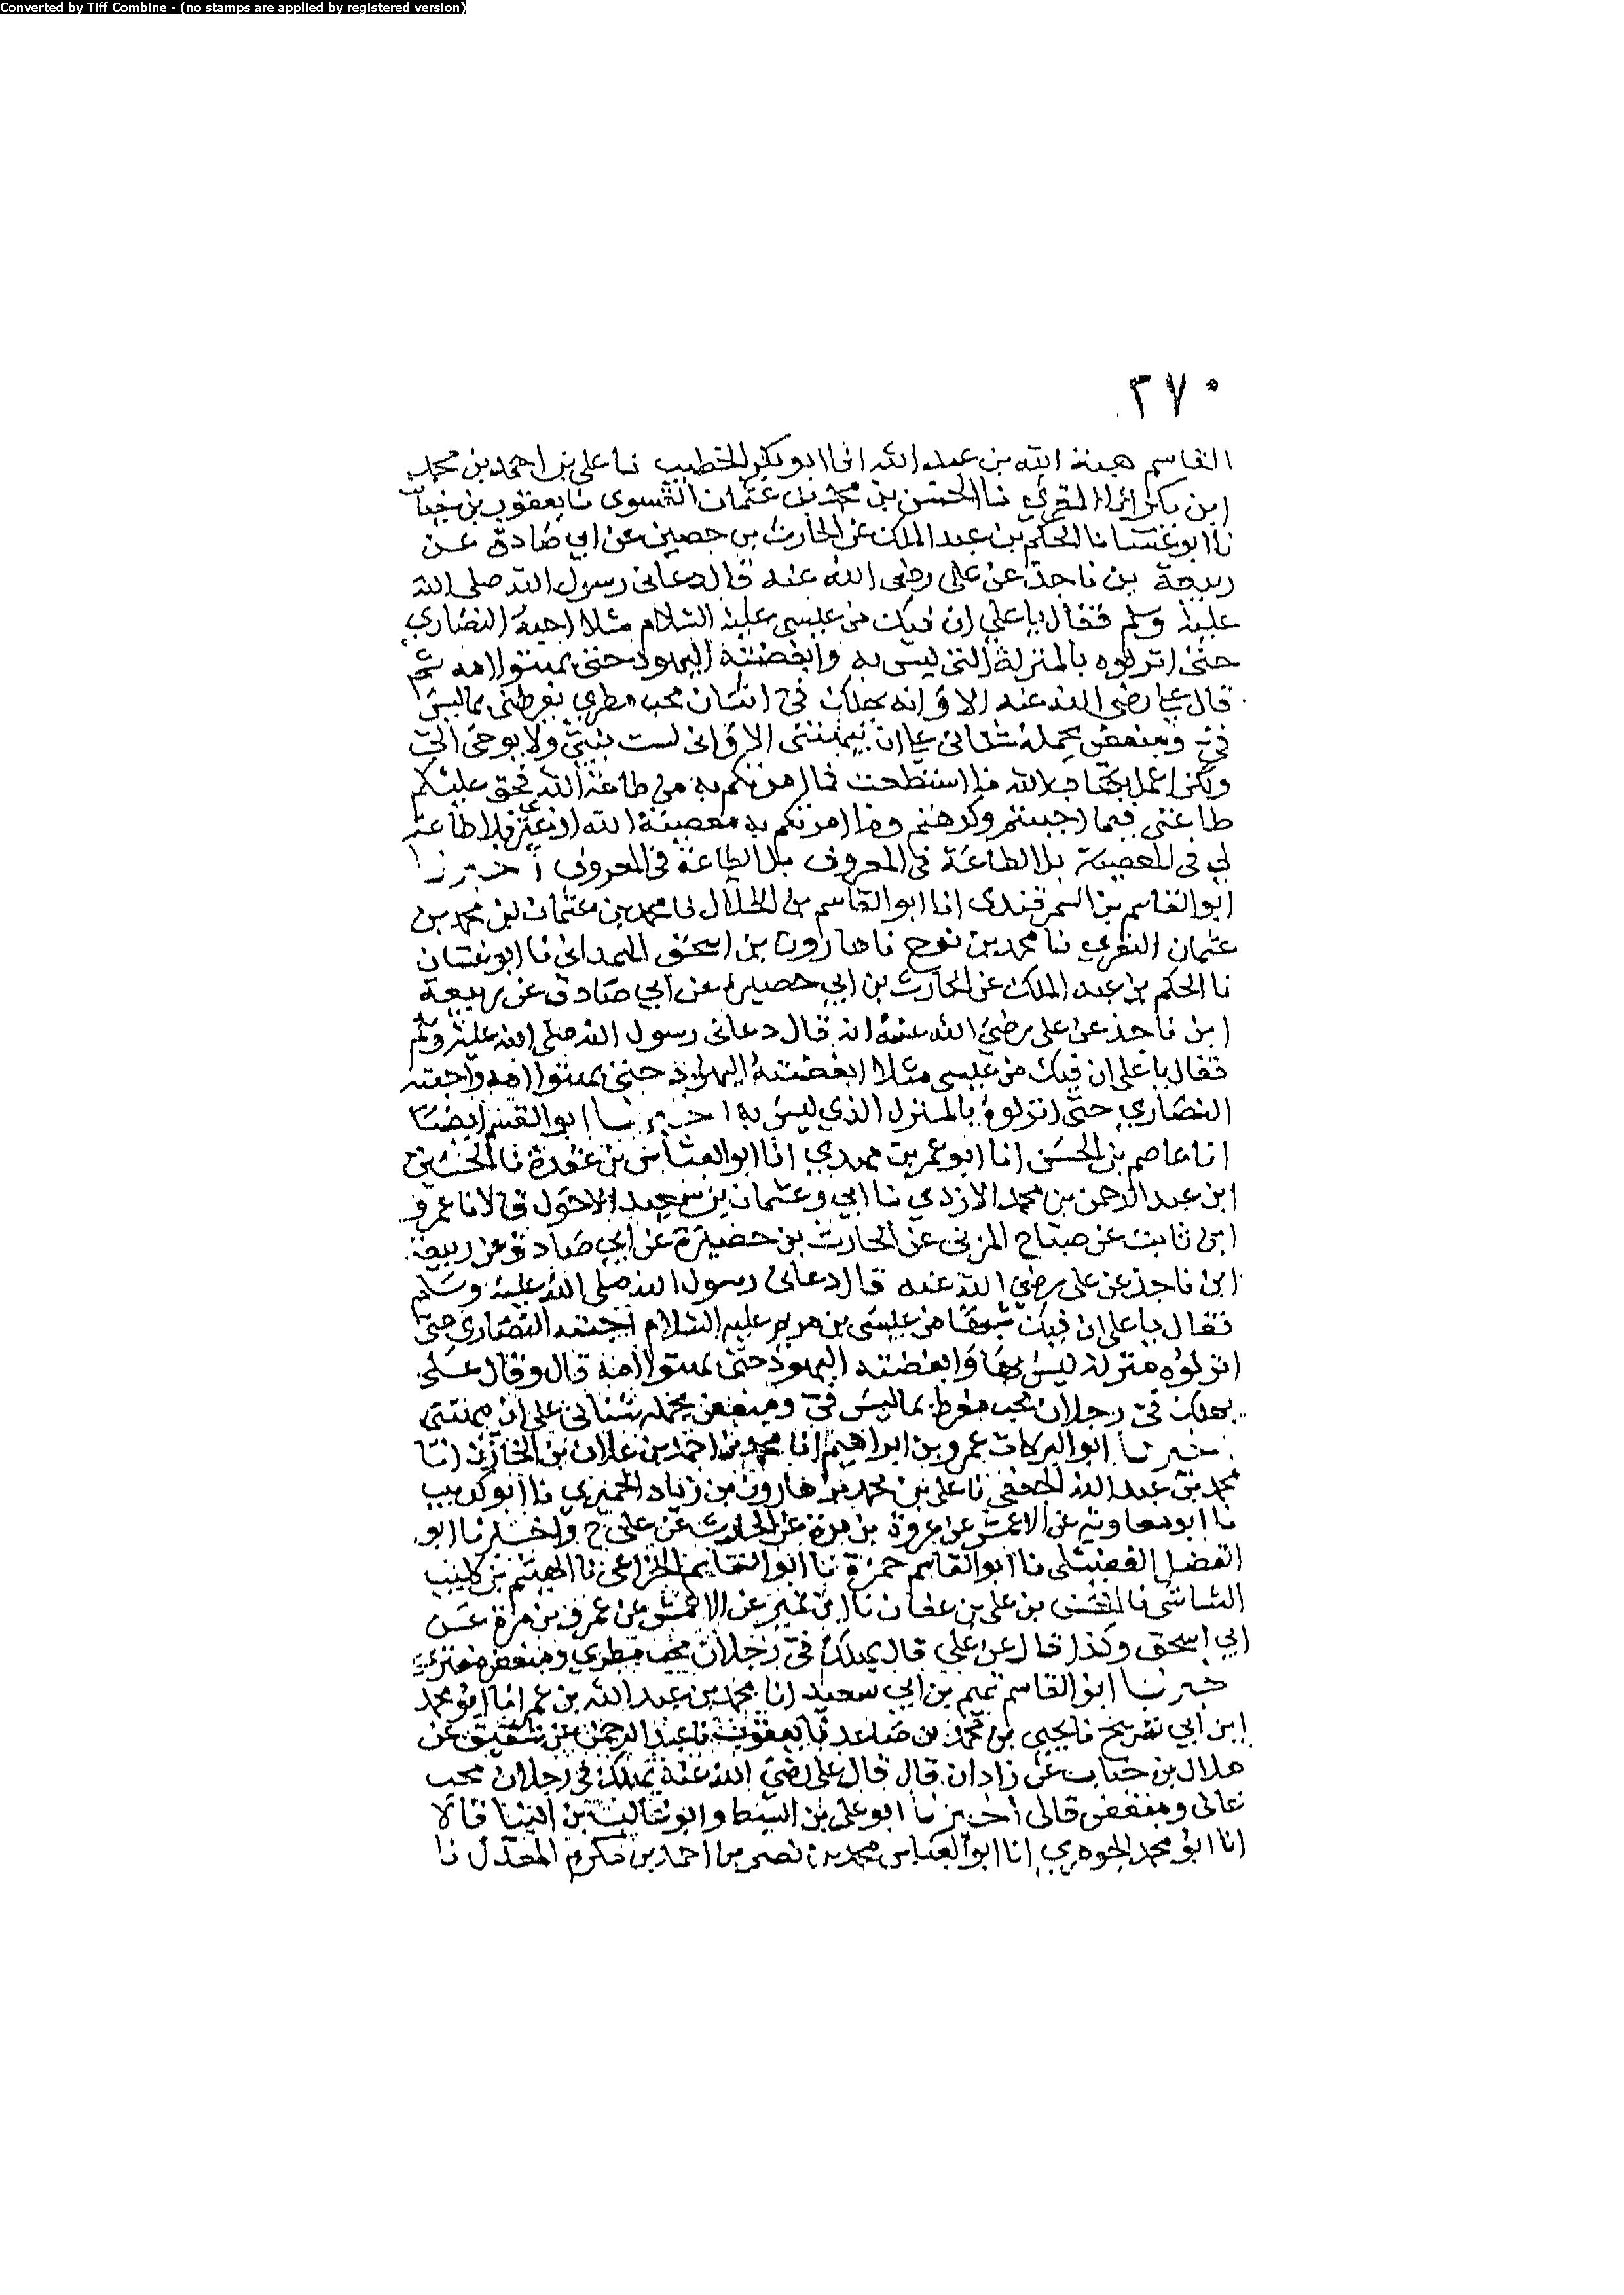 Converted by Tiff Combine - (no stamps are applied by registered version)
٣٧٠
القاسم هبة الله بن عبد الله انا ابو بكر الخطيب نا على بن احمد بن محمد
ابن بكر المقري نا الحسن بن محمد بن عثمان النسوى نا يعقوب بن
نا ابو غسان نا الحكم بن عبد الملك عن الحارث بن حصين عن ابي صادق عن
ربيعة بن ناجذ عن على رضى الله عنه قال دعانى رسول الله صلى الله
عليه وسلم فقال يا على ان فيك من عيسى عليه السلام مثلا احبه النصاري
حتى انزلوه بالمنزلة التى ليس به وابغضته اليهود حتى بهتوا امه ثم
قال على رضى الله عنه الا وانه يهلك في اثنان محب مطري يفرطنى بما ليس
في ومبغض يحمله شنانى على ان يبهتنى الا وانى لست بنبي ولا يوحى الي
ولكنى اعمل بكتاب الله ما استطعت فما امرتكم به من طاعة الله فحق عليكم
طاعتى فيما احببتم وكرهتم وما امرتكم به معصية الله او غيري فلا طاعة
لي في المعصية بلا الطاعة في المعروف بلا الطاعة في المعروف اخبرنا
ابو القاسم بن السمرقندى انا ابو القاسم بن الخلال نا محمد بن عثمان بن محمد بن
عثمان النفري نا محمد بن نوح نا هارون بن اسحق الهمدانى نا ابو غسان
نا الحكم بن عبد الملك عن الحارث بن ابي حصيرة عن ابي صادق عن ربيعة
ابن ناجذ عن على رضى الله عنه انه قال دعانى رسول الله صلى الله عليه وسلم
فقال يا على ان فيك من عيسى مثلا ابغضته اليهود حتى بهتوا امه واحبته
النصاري حتى انزلوه بالمنزل الذي ليس به اخبرنا ابو القسم ايضا
انا عاصم بن الحسن انا ابو عمر بن مهدي انا ابو العباس بن عقدة نا الحسين
ابن عبد الرحمن بن محمد الازدي نا ابي وعثمان بن سعيد الاحول قالا نا عمرو
ابن ثابت عن صباح المزنى عن الحارث بن حصيرة عن ابي صادق عن ربيعة
ابن ناجذ عن على رضى الله عنه قال دعانى رسول الله صلى الله عليه وسلم
فقال يا على ان فيك شبها من عيسى بن مريم عليه السلام احبته النصاري حتى
انزلوه منزلة ليس بها وابغضته اليهود حتى بهتوا امه قال وقال على
يهلك في رجلان محب مفرط بما ليس في ومبغض يحمله شنانى على ان يبهتنى
اخبرنا ابو البركات عمرو بن ابراهيم انا محمد بن احمد بن علان بن الخازن انا
محمد بن عبد الله الجعفى نا على بن محمد بن هارون بن زياد الحميري نا ابو كريب
نا ابو معاوية عن الاعمش عن عروة بن مرة عن الحارث عن على ح واخبرنا ابو
الفضل الفضيلى نا ابو القاسم حمزة نا ابو القاسم الخزاعى نا الهيثم بن كليب
الشاشى نا الحسن بن على بن عفان نا ابن نمير عن الاعمش عن عمرو بن مرة عن
ابي اسحق وكذا قال عن على قال يهلك في رجلان محب مطري ومبغض مفتري
اخبرنا ابو القاسم تميم بن ابي سعيد انا محمد بن عبد الله بن عمر انا ابو محمد
ابن ابي شريح نا يحيى بن محمد بن صاعد نا يعقوب نا عبد الرحمن عن شقيق عن
هلال بن خباب عن زادان قال قال على رضى الله عنه يهلك في رجلان محب
غالى ومبغض قالى اخبرنا ابو على بن السبط وابو غالب بن البنا قالا
انا ابو محمد الجوهري انا ابو العباس محمد بن نصر بن احمد بن مكرم المعدل نا